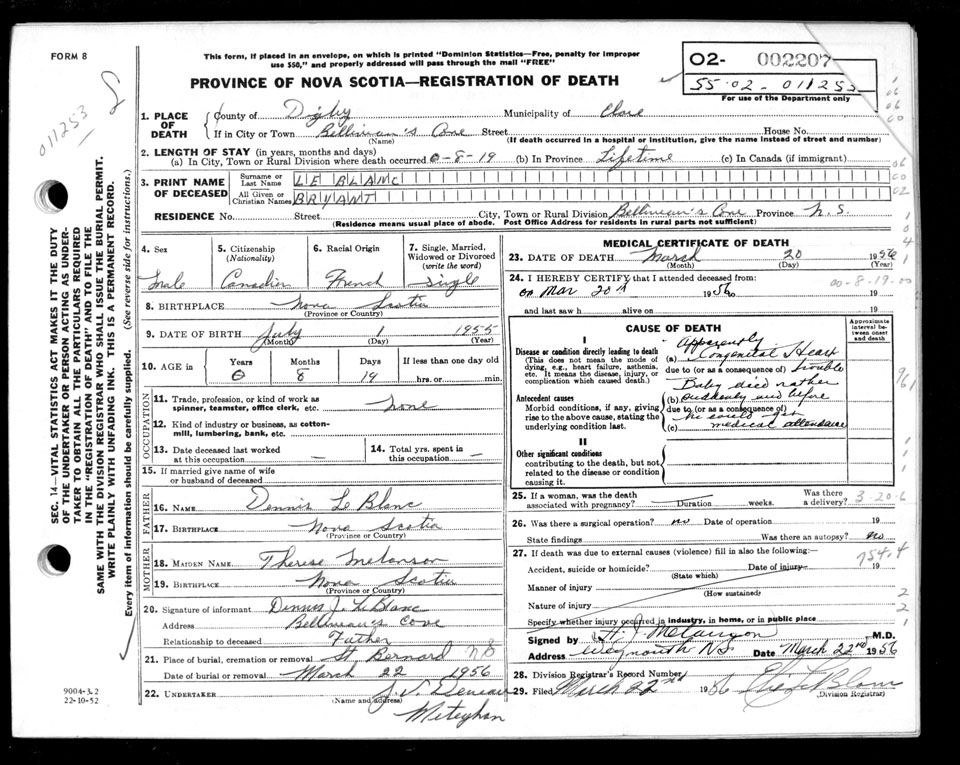 FORM 8
This form, if placed in an envelope, on which is printed "Dominion Statistics—Free, penalty for improper
use $50," and properly addressed will pass through the mail "FREE"
PROVINCE OF NOVA SCOTIA—REGISTRATION OF DEATH
02- 002207
55-02-011253
For use of the Department only
011253
SEC. 14—VITAL STATISTICS ACT MAKES IT THE DUTY
OF THE UNDERTAKER OR PERSON ACTING AS UNDER-
TAKER TO OBTAIN ALL THE PARTICULARS REQUIRED
IN THE "REGISTRATION OF DEATH" AND TO FILE THE
SAME WITH THE DIVISION REGISTRAR WHO SHALL ISSUE THE BURIAL PERMIT.
WRITE PLAINLY WITH UNFADING INK. THIS IS A PERMANENT RECORD.
Every item of information should be carefully supplied. (See reverse side for instructions.)
1. PLACE OF DEATH County of Digby Municipality of Clare
If in City or Town Belliveau's Cove Street House No.
(Name) (If death occurred in a hospital or institution, give the name instead of street and number)
2. LENGTH OF STAY (in years, months and days)
(a) In City, Town or Rural Division where death occurred 0-8-19 (b) In Province Lifetime (c) In Canada (if immigrant)
3. PRINT NAME OF DECEASED Surname or Last Name LE BLANC
All Given or Christian Names BRYANT
RESIDENCE No. Street City, Town or Rural Division Belliveau's Cove Province N.S.
(Residence means usual place of abode. Post Office Address for residents in rural parts not sufficient)
4. Sex Male
5. Citizenship (Nationality) Canadian
6. Racial Origin French
7. Single, Married, Widowed or Divorced (write the word) Single
8. BIRTHPLACE Nova Scotia
(Province or Country)
9. DATE OF BIRTH July 1 1955
(Month) (Day) (Year)
10. AGE in Years Months Days If less than one day old
0 8 19 hrs. or min.
OCCUPATION
11. Trade, profession, or kind of work as
spinner, teamster, office clerk, etc. None
12. Kind of industry or business, as cotton-
mill, lumbering, bank, etc.
13. Date deceased last worked
at this occupation —
14. Total yrs. spent in
this occupation —
15. If married give name of wife
or husband of deceased
FATHER
16. NAME Dennis Le Blanc
17. BIRTHPLACE Nova Scotia
(Province or Country)
MOTHER
18. MAIDEN NAME Therese Melanson
19. BIRTHPLACE Nova Scotia
(Province or Country)
20. Signature of informant Dennis J. LeBlanc
Address Belliveau's Cove
Relationship to deceased Father
21. Place of burial, cremation or removal St Bernard NS
Date of burial or removal March 22 1956
22. UNDERTAKER
(Name and address)
Meteghan
9004-3.2
22-10-52
MEDICAL CERTIFICATE OF DEATH
23. DATE OF DEATH March 20 1956
(Month) (Day) (Year)
24. I HEREBY CERTIFY that I attended deceased from:
on Mar 20th 1956 19
and last saw h alive on 19
00-8-19-00
CAUSE OF DEATH
Approximate interval between onset and death
I
Disease or condition directly leading to death
(This does not mean the mode of
dying, e.g., heart failure, asthenia,
etc. It means the disease, injury, or
complication which caused death.)
(a) Apparently Congenital Heart
due to (or as a consequence of) trouble
Antecedent causes
Morbid conditions, if any, giving
rise to the above cause, stating the
underlying condition last.
Baby died rather
(b) suddenly and before
due to (or as a consequence of)
he could get
(c) medical attendance
II
Other significant conditions
contributing to the death, but not
related to the disease or condition
causing it.
25. If a woman, was the death
associated with pregnancy? Duration weeks. Was there a delivery?
3-20-6
26. Was there a surgical operation? no Date of operation 19
State findings Was there an autopsy? no
27. If death was due to external causes (violence) fill in also the following:—
754.4
Accident, suicide or homicide? Date of injury 19
(State which)
Manner of injury
(How sustained)
Nature of injury
Specify whether injury occurred in industry, in home, or in public place
Signed by M.D.
Address Weymouth N.S. Date March 22nd 1956
28. Division Registrar's Record Number
29. Filed March 22nd 1956
(Division Registrar)